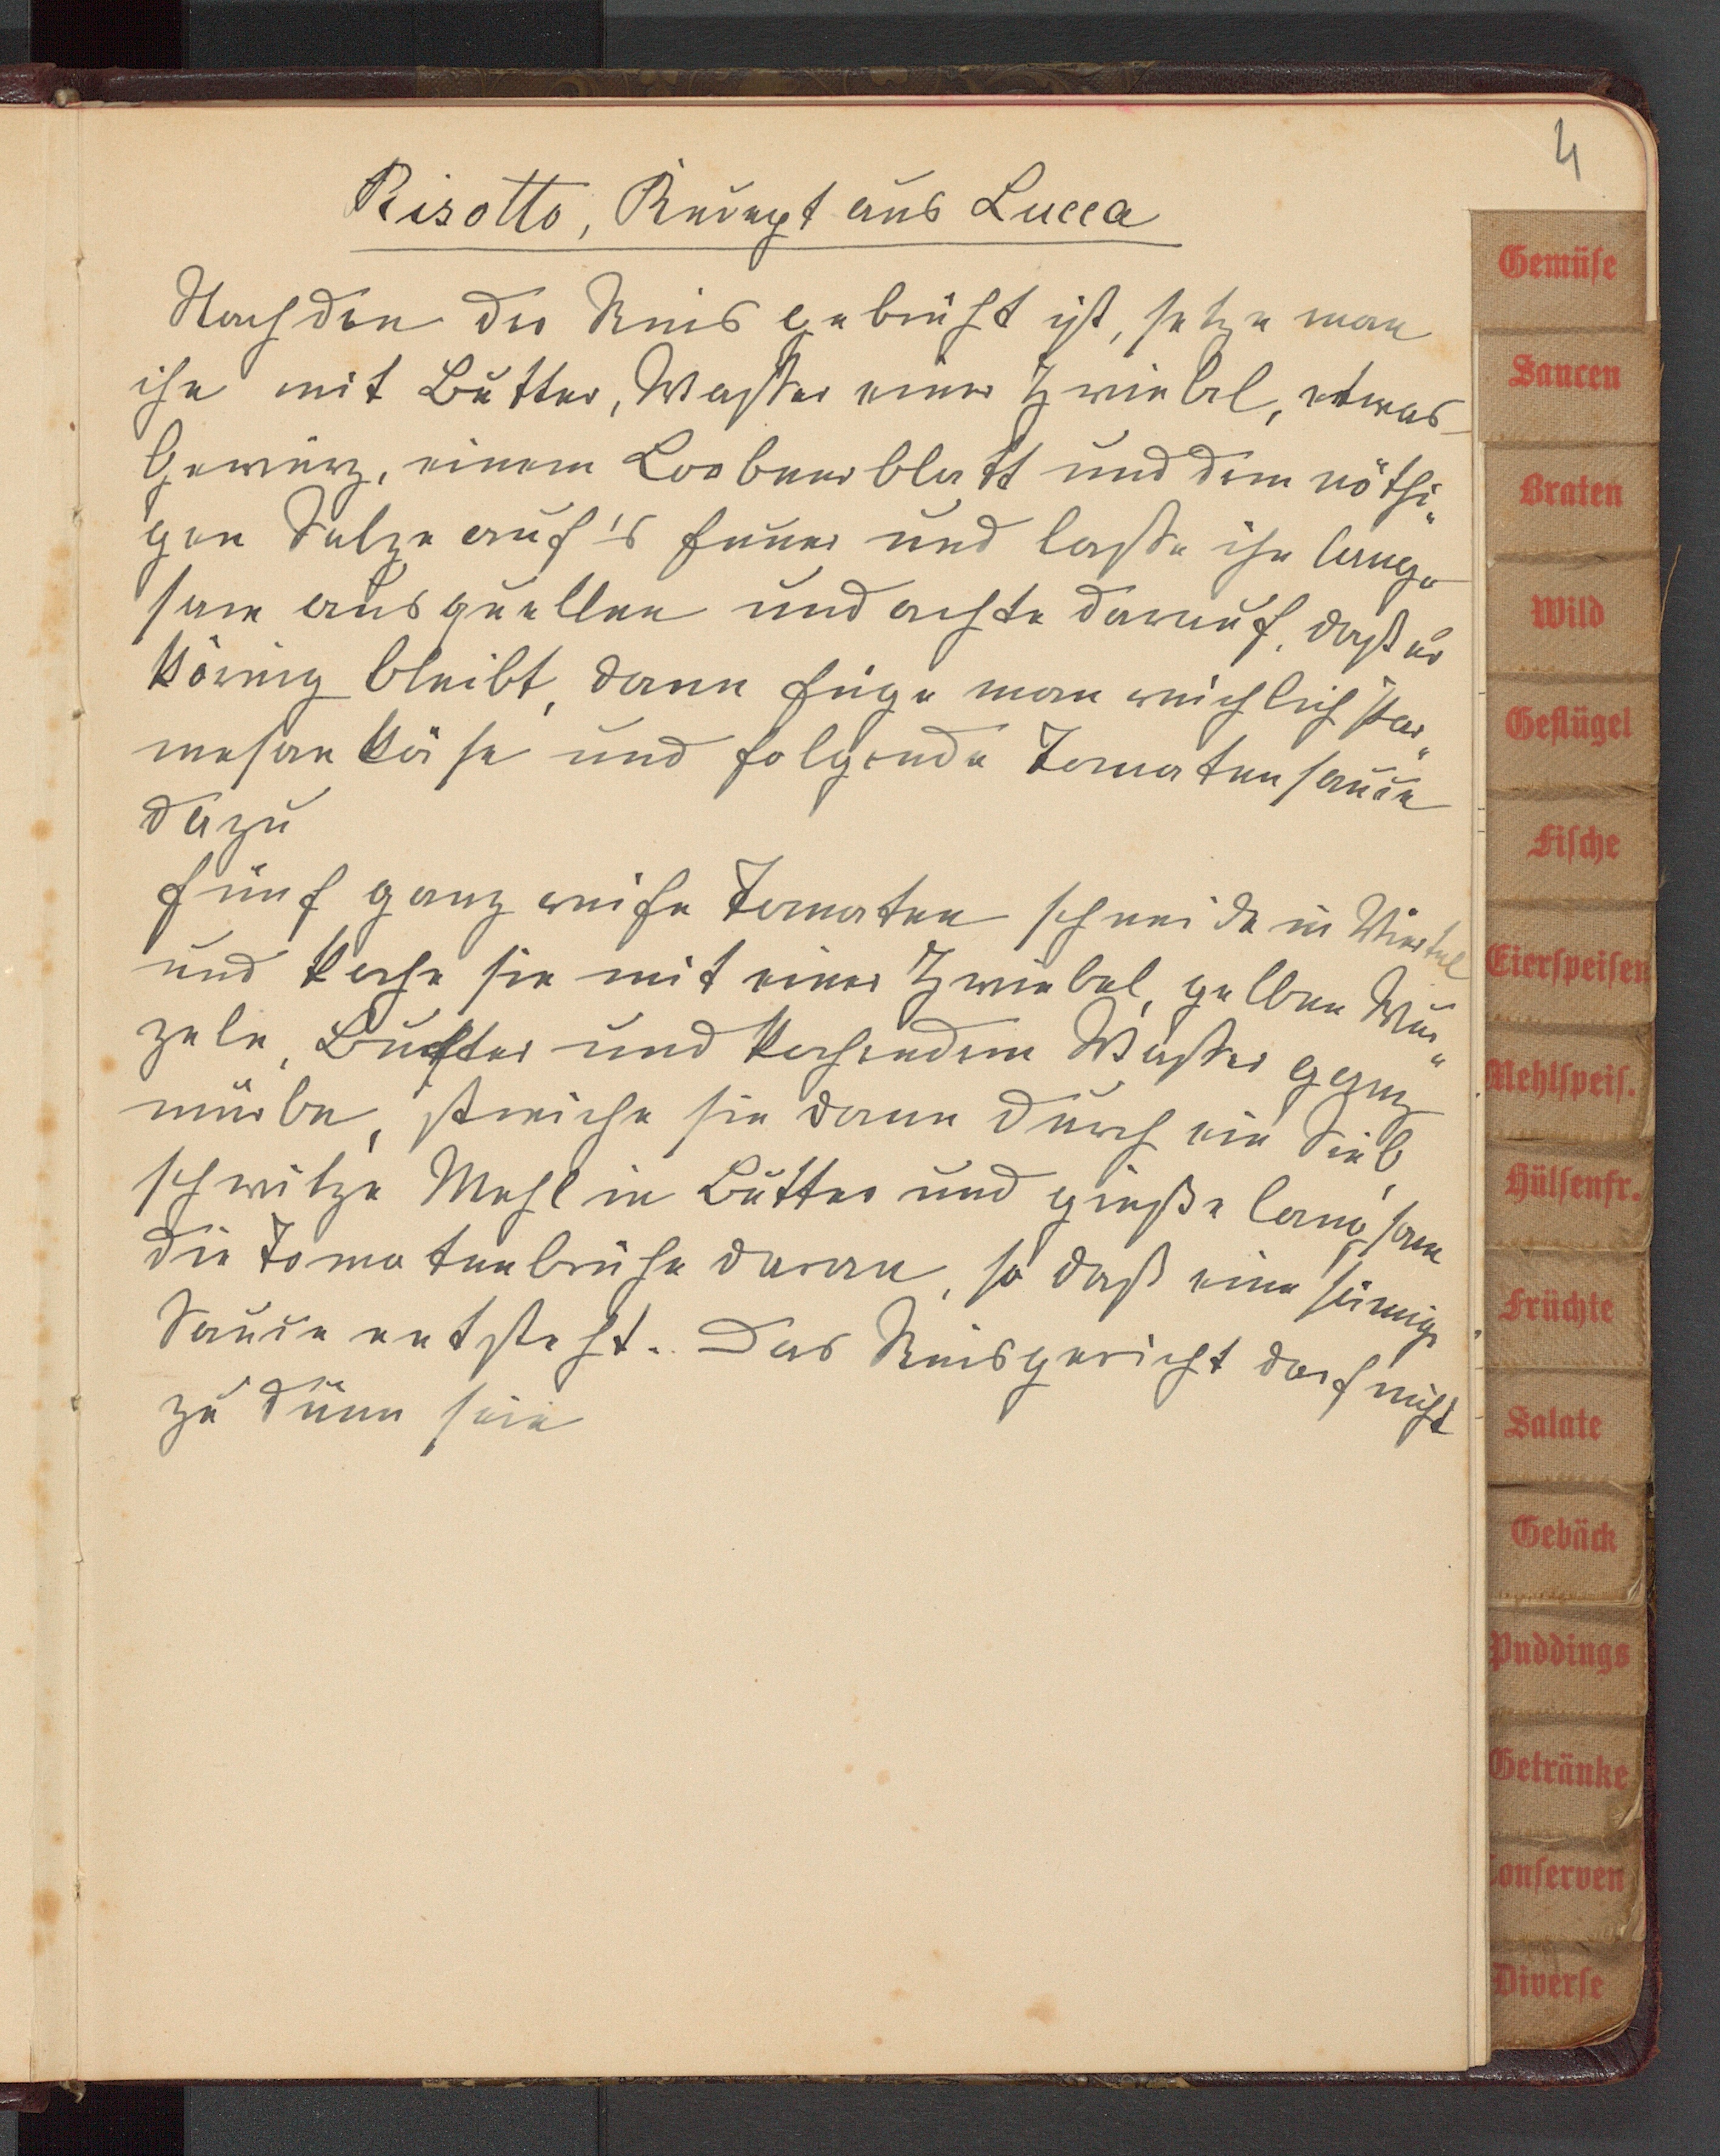 4
Risotto, Recept aus Lucca
Nachdem der Reis gebrüht ist, setze man
ihn mit Butter, Wasser einer Zwiebel, etwas
Gewürz, einem Loorbeerblatt und dem nöthi„
gen Salze auf's Feuer und lasse ihn lang„
sam ausquellen und achte darauf, daß er
körnig bleibt, dann füge man reichlich Par„
mesankäse und folgende Tomatensauce
dazu
Fünf ganz reife Tomaten schneide in Viertel
und koche sie mit einer Zwiebel, gelben Wur„
zeln, Butter und kochendem Wasser ganz
mürbe, streiche sie dann durch ein Sieb,
schwitze Mehl in Butter und gieße langsam
die Tomatenbrühe daran, so daß eine sämige
Sauce entsteht. Das Reisgericht darf nicht
zu dünn sein
Gemüse
Saucen
Braten
Wild
Geflügel
Fische
Eierspeisen
Mehlspeis.
Hülsenfr.
Früchte
Salate
Gebäck
Puddings
Getränke
Conserven
Diverse